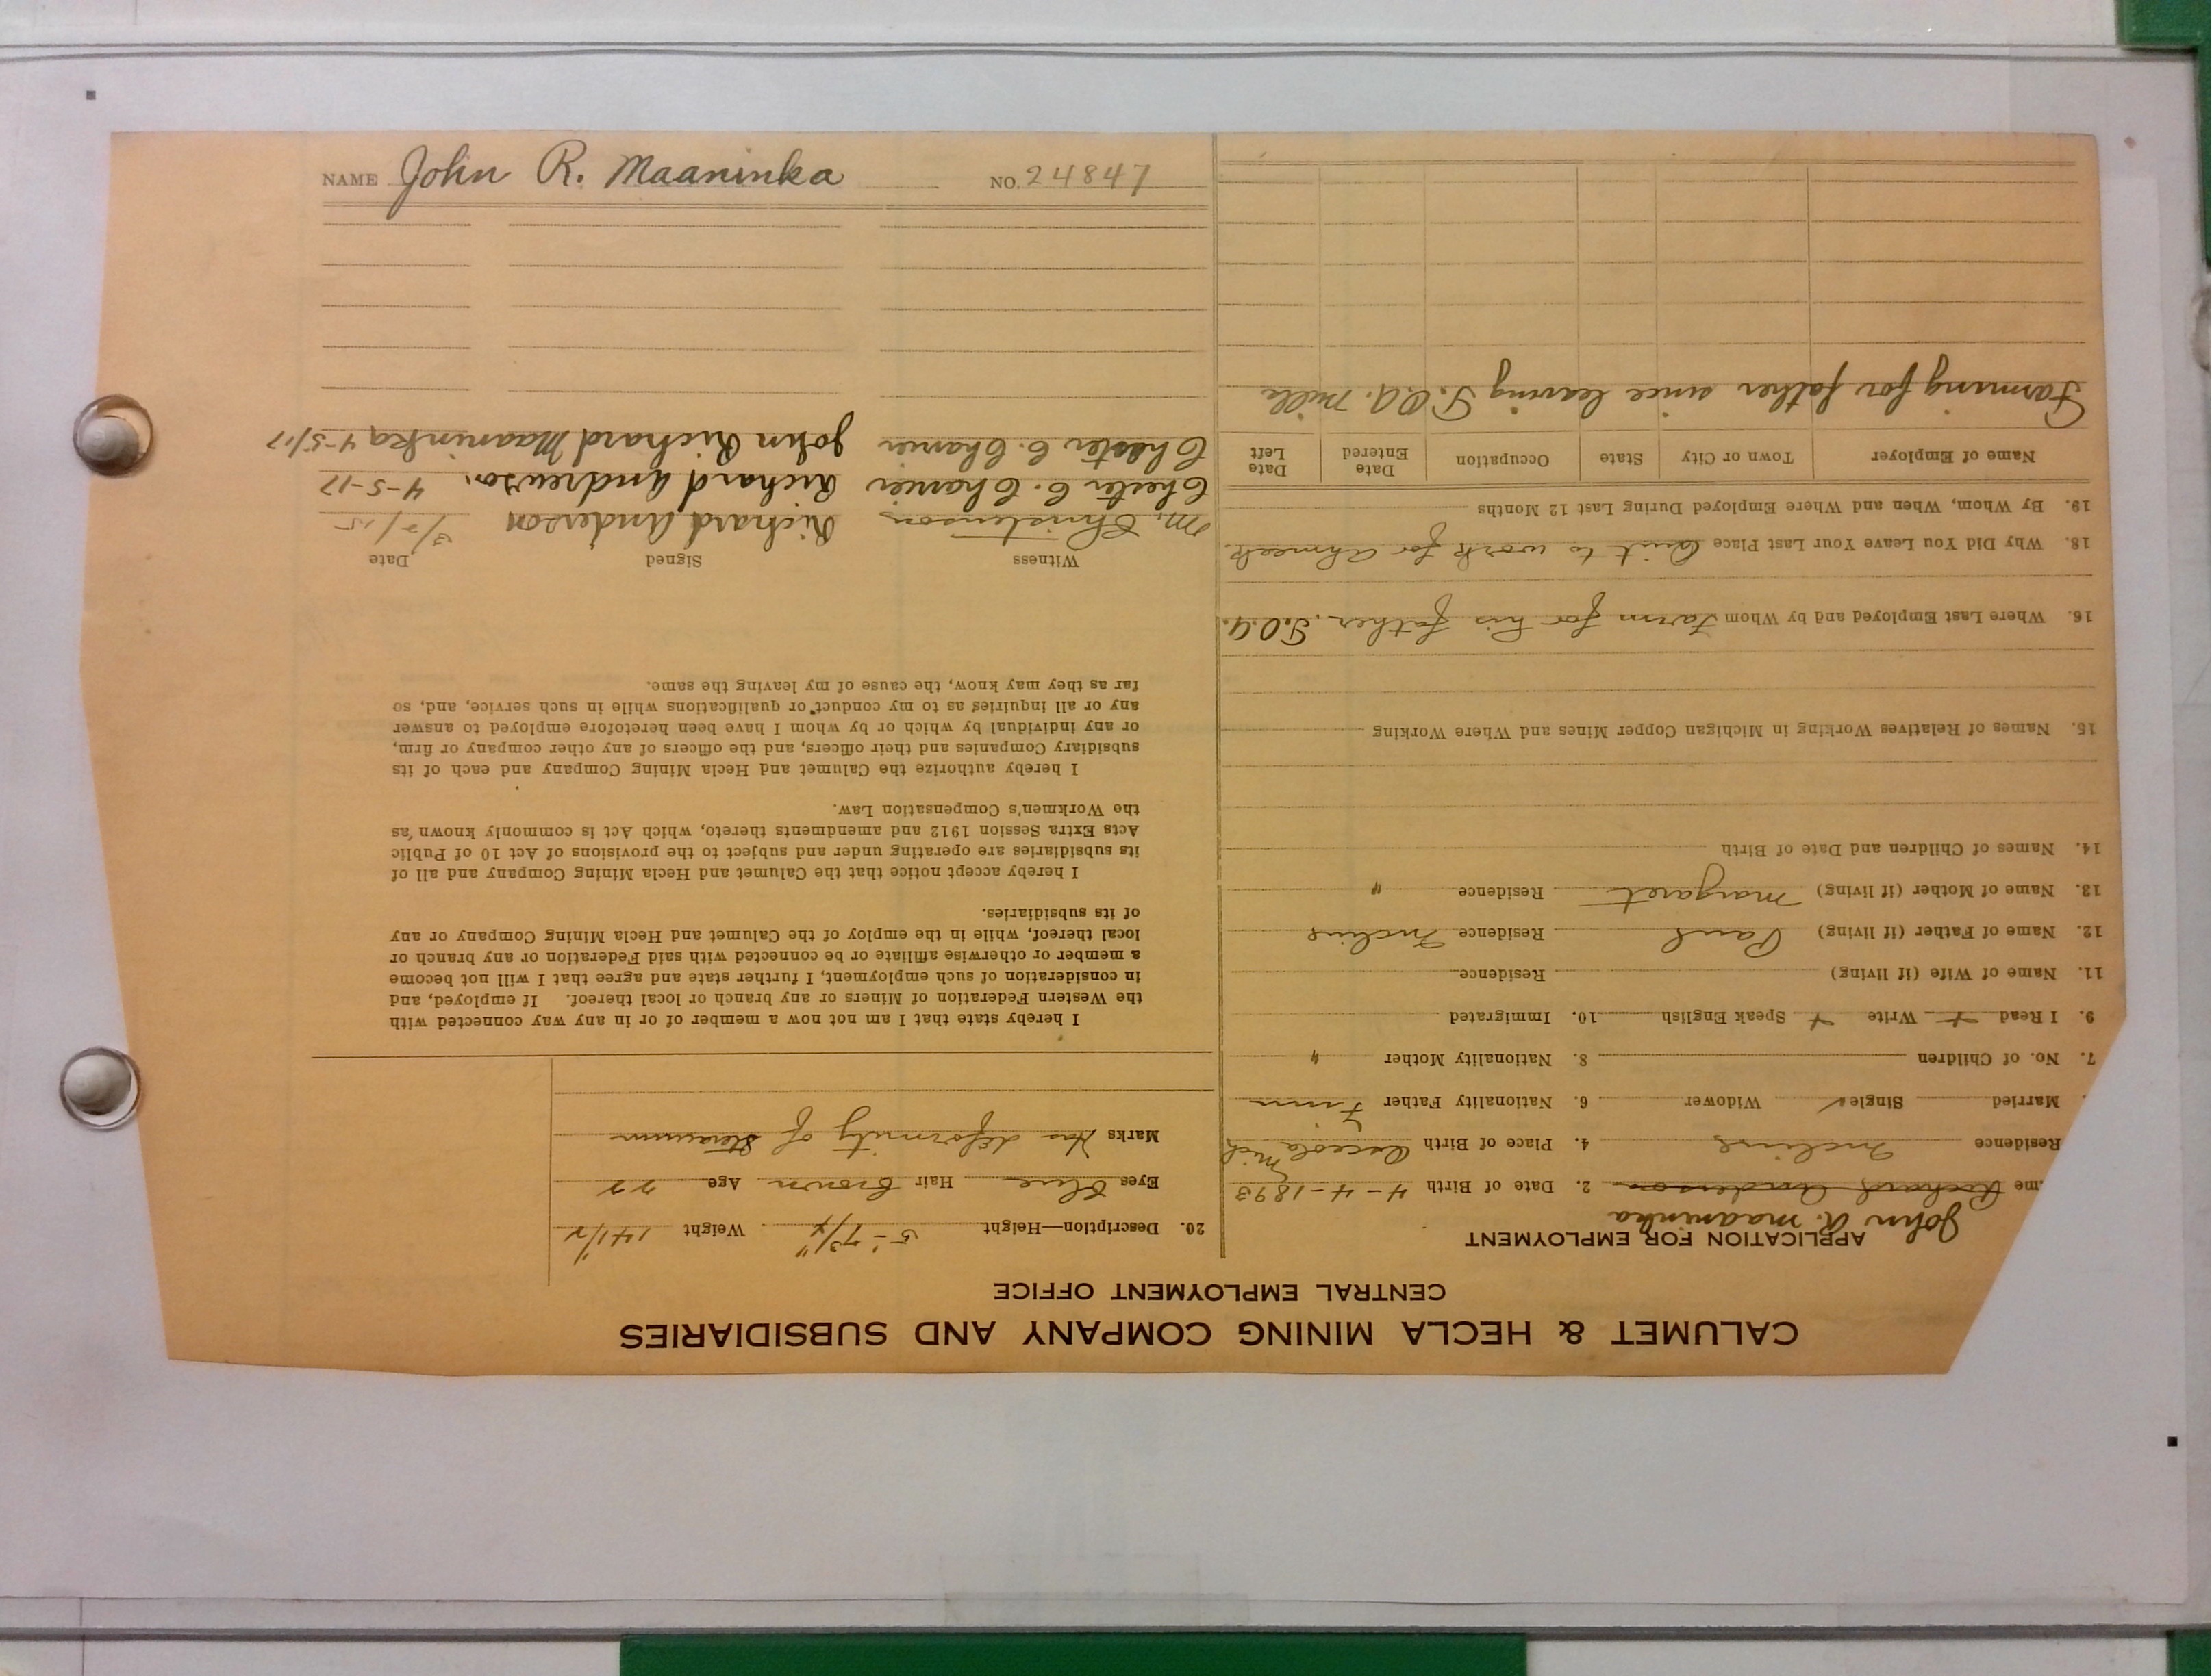 NAME John R. Maaninka NO. 24847
CALUMET & HECLA MINING COMPANY AND SUBSIDIARIES
CENTRAL EMPLOYMENT OFFICE
APPLICATION FOR EMPLOYMENT
John R. Maaninka
me Richard Anderson 2. Date of Birth 4-4-1893
Residence Incline 4. Place of Birth Osceola Mich
Married Single ✓ Widower 6. Nationality Father Finn
7. No. of Children 8. Nationality Mother "
9. I Read + Write + Speak English 10. Immigrated
11. Name of Wife (if living) Residence
12. Name of Father (if living) Paul Residence Incline
13. Name of Mother (if living) Margaret Residence "
14. Names of Children and Date of Birth
15. Names of Relatives Working in Michigan Copper Mines and Where Working
16. Where Last Employed and by Whom Farm for his father,
18. Why Did You Leave Your Last Place Quit to work for Ahmeek.
19. By Whom, When and Where Employed During Last 12 Months
Name of Employer Town or City State Occupation Date Entered Date Left
Farming for father since leaving mill
20. Description—Height 5'-7 3/4" Weight 141 1/2
Eyes Blue Hair Brown Age 22
Marks Has deformity of
I hereby state that I am not now a member of or in any way connected with
the Western Federation of Miners or any branch or local thereof. If employed, and
in consideration of such employment, I further state and agree that I will not become
a member or otherwise affiliate or be connected with said Federation or any branch or
local thereof, while in the employ of the Calumet and Hecla Mining Company or any
of its subsidiaries.
I hereby accept notice that the Calumet and Hecla Mining Company and all of
its subsidiaries are operating under and subject to the provisions of Act 10 of Public
Acts Extra Session 1912 and amendments thereto, which Act is commonly known as
the Workmen's Compensation Law.
I hereby authorize the Calumet and Hecla Mining Company and each of its
subsidiary Companies and their officers, and the officers of any other company or firm,
or any individual by which or by whom I have been heretofore employed to answer
any or all inquiries as to my conduct or qualifications while in such service, and, so
far as they may know, the cause of my leaving the same.
Witness Signed Date
M. Christenson Richard Anderson 3/2/15
Chester C. Richard Anderson. 4-5-17
Chester C. John Richard Maaninka 4-5/17